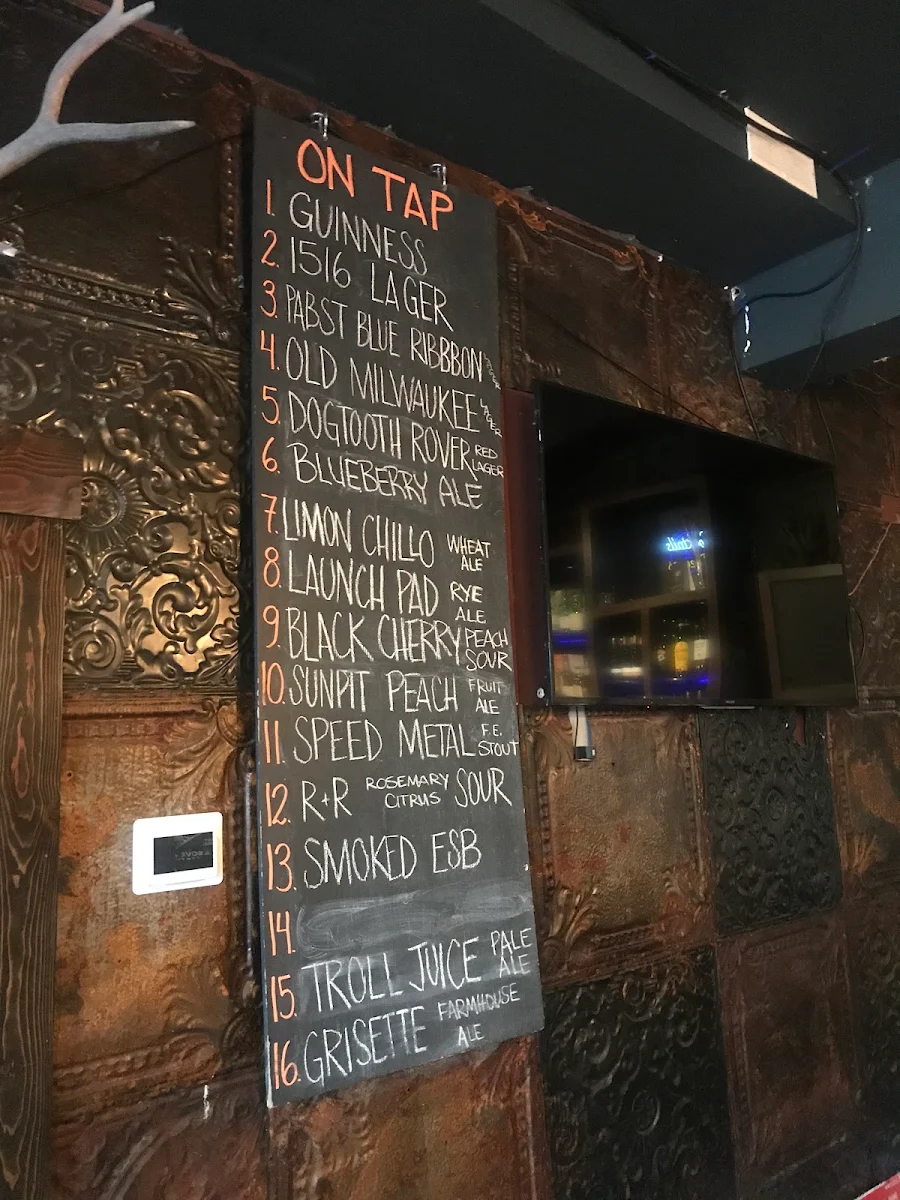 ON TAP
1. GUINNESS
2. 1516 LAGER
3. PABST BLUE RIBBBON
4. OLD MILWAUKEE LAGER
5. DOGTOOTH ROVER RED LAGER
6. BLUEBERRY ALE
7. LIMON CHILLO WHEAT ALE
8. LAUNCH PAD RYE ALE
9. BLACK CHERRY PEACH SOUR
10. SUNPIT PEACH FRUIT ALE
11. SPEED METAL F.E. STOUT
12. R+R ROSEMARY CITRUS SOUR
13. SMOKED ESB
14.
15. TROLL JUICE PALE ALE
16. GRISETTE FARMHOUSE ALE